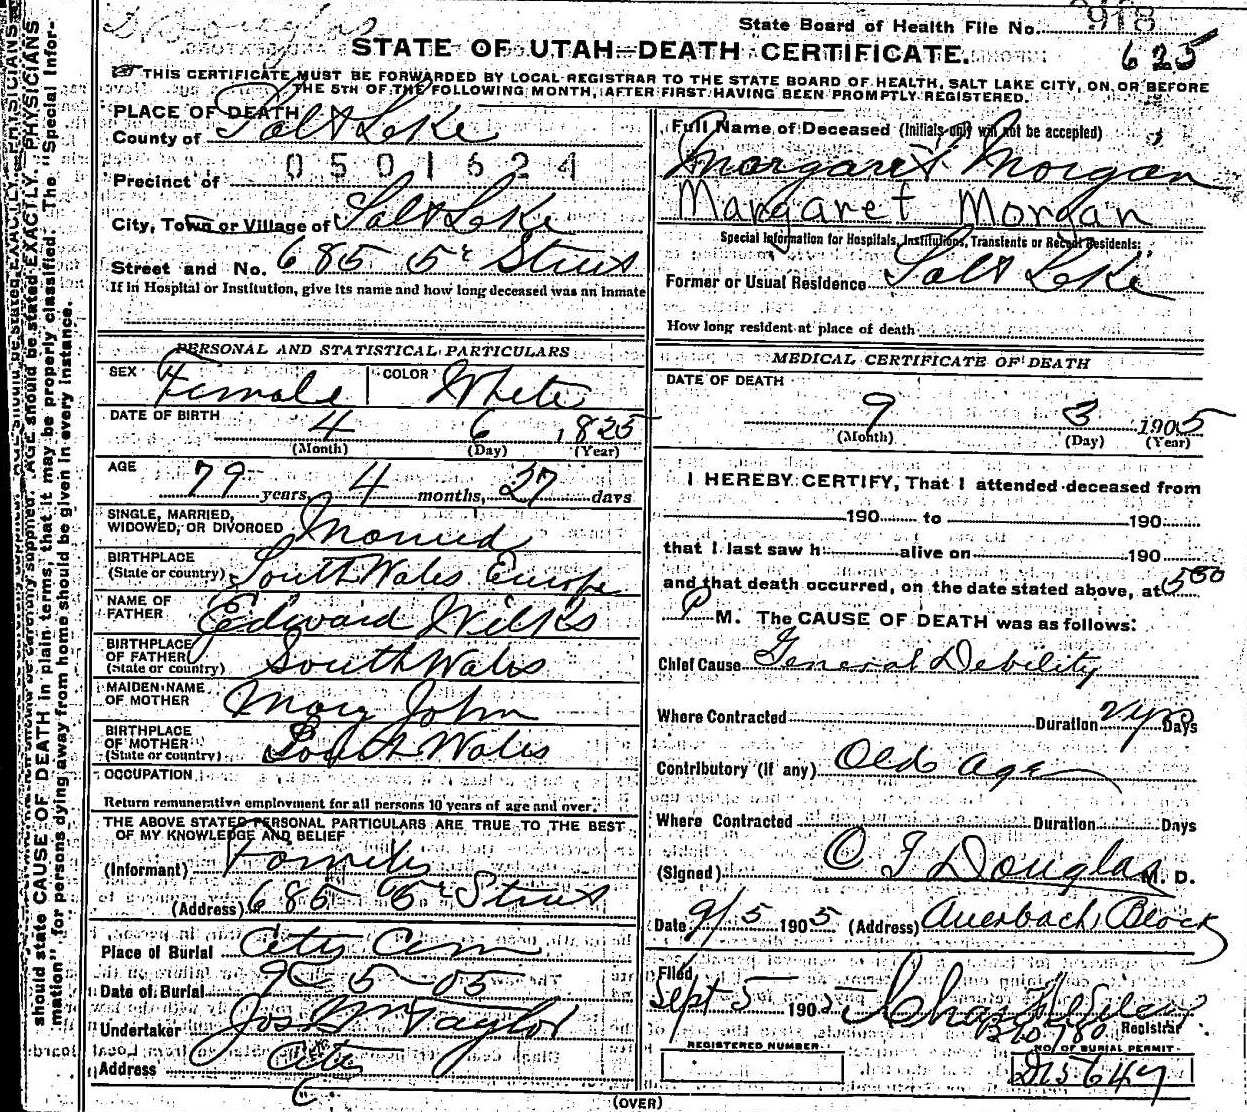 Douglas
State Board of Health File No. 918
STATE OF UTAH—DEATH CERTIFICATE.
625
THIS CERTIFICATE MUST BE FORWARDED BY LOCAL REGISTRAR TO THE STATE BOARD OF HEALTH, SALT LAKE CITY, ON OR BEFORE
THE 5TH OF THE FOLLOWING MONTH, AFTER FIRST HAVING BEEN PROMPTLY REGISTERED.
PLACE OF DEATH
County of Salt Lake
0501624
Precinct of
City, Town or Village of Salt Lake
Street and No. 685 5th Street
If in Hospital or Institution, give its name and how long deceased was an inmate
PERSONAL AND STATISTICAL PARTICULARS
SEX Female COLOR White
DATE OF BIRTH 4 6 1825
(Month) (Day) (Year)
AGE 79 years, 4 months, 27 days
SINGLE, MARRIED,
WIDOWED, OR DIVORCED Married
BIRTHPLACE
(State or country) South Wales Europe
NAME OF
FATHER Edward Wilks
BIRTHPLACE
OF FATHER
(State or country) South Wales
MAIDEN NAME
OF MOTHER Mary John
BIRTHPLACE
OF MOTHER
(State or country) South Wales
OCCUPATION
Return remunerative employment for all persons 10 years of age and over.
THE ABOVE STATED PERSONAL PARTICULARS ARE TRUE TO THE BEST
OF MY KNOWLEDGE AND BELIEF
(Informant) Family
(Address) 685 5th Street
Place of Burial City Cem
Date of Burial 9-5-05
Undertaker Jos Wm Taylor
Address City
Full Name of Deceased (Initials only will not be accepted)
Margaret Morgan
Margaret Morgan
Special Information for Hospitals, Institutions, Transients or Recent Residents:
Former or Usual Residence Salt Lake
How long resident at place of death
MEDICAL CERTIFICATE OF DEATH
DATE OF DEATH
9 3 1905
(Month) (Day) (Year)
I HEREBY CERTIFY, That I attended deceased from
190 to 190
that I last saw h alive on 190
and that death occurred, on the date stated above, at 500
P M. The CAUSE OF DEATH was as follows:
Chief Cause General Debility
Where Contracted Duration 2 yrs Days
Contributory (if any) Old age
Where Contracted Duration Days
(Signed) Douglas M. D.
Date 9/5 1905 (Address) Auerbach Block
Filed
Sept 5 1905 Chas
Registrar
REGISTERED NUMBER
NO. OF BURIAL PERMIT
(OVER)
should state CAUSE OF DEATH in plain terms, that it may be properly classified. The "Special Infor-
mation" for persons dying away from home should be given in every instance.
AGE should be stated EXACTLY. PHYSICIANS